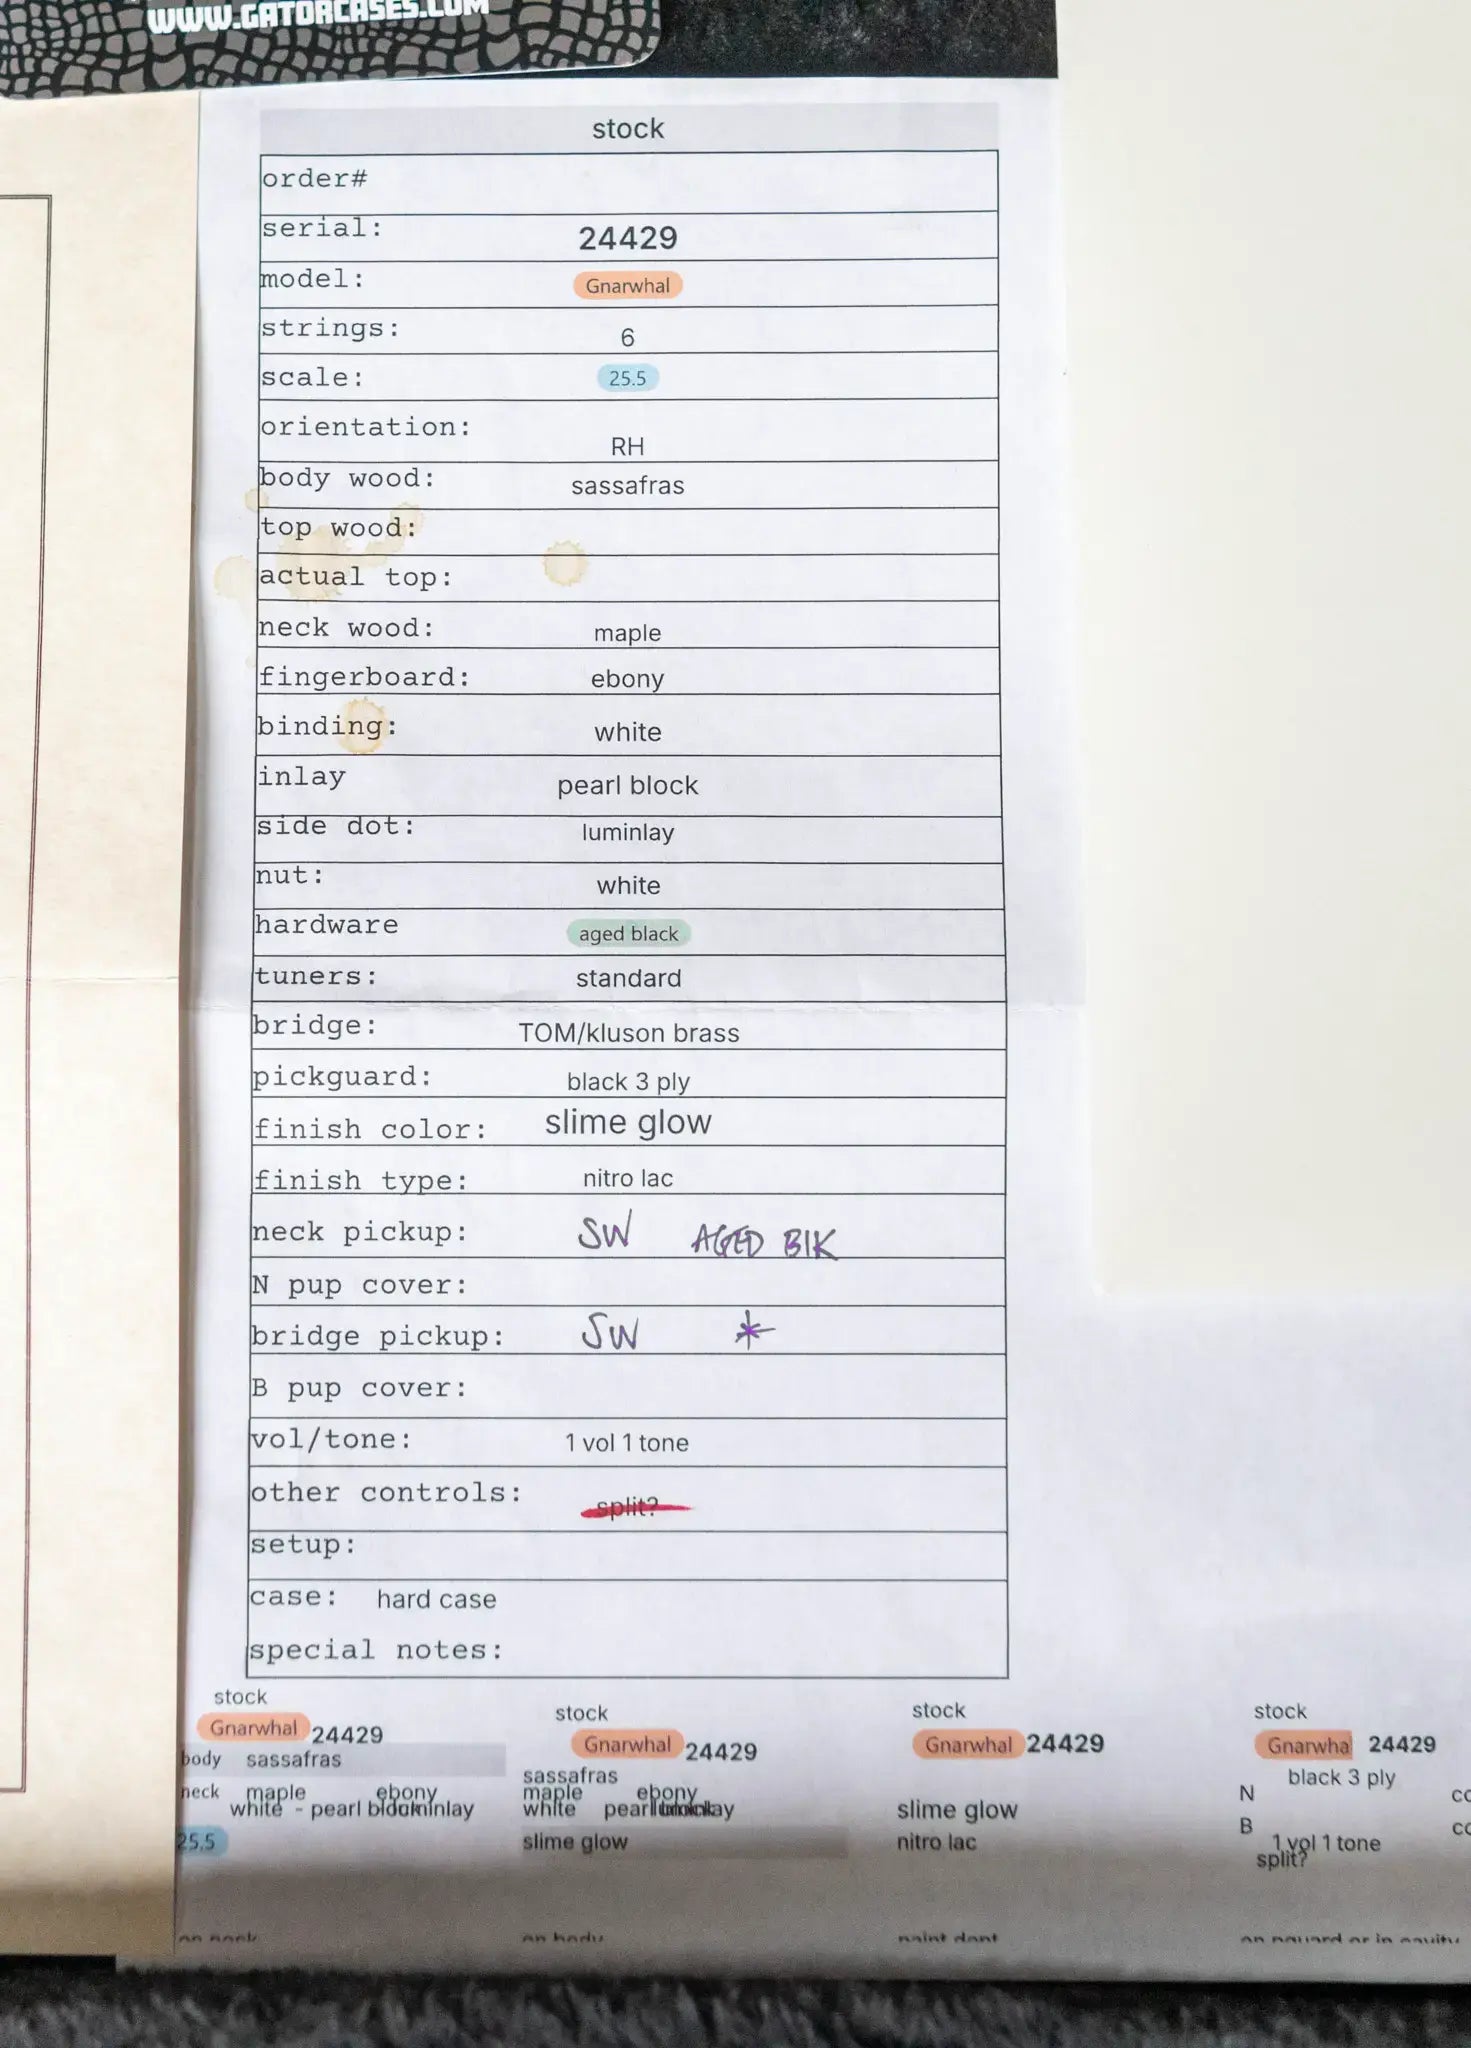 WWW.GATORCASES.COM
stock
order#
serial: 24429
model: Gnarwhal
strings: 6
scale: 25.5
orientation: RH
body wood: sassafras
top wood:
actual top:
neck wood: maple
fingerboard: ebony
binding: white
inlay pearl block
side dot: luminlay
nut: white
hardware aged black
tuners: standard
bridge: TOM/kluson brass
pickguard: black 3 ply
finish color: slime glow
finish type: nitro lac
neck pickup: SW AGED BlK
N pup cover:
bridge pickup: SW *
B pup cover:
vol/tone: 1 vol 1 tone
other controls: split?
setup:
case: hard case
special notes:
stock
Gnarwhal 24429
body sassafras
neck maple ebony
white - pearl block luminlay
25.5
stock
Gnarwhal 24429
sassafras
maple ebony
white pearl
slime glow
stock
Gnarwhal 24429
slime glow
nitro lac
stock
Gnarwha 24429
black 3 ply
N
B
1 vol 1 tone
split?